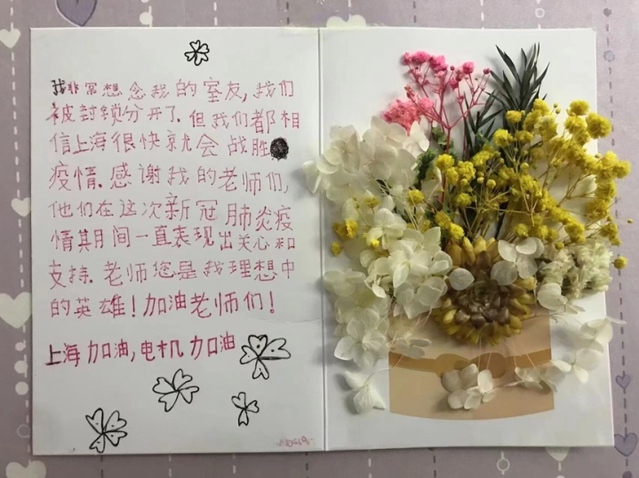 我非常想念我的室友,我们
被封锁分开了.但我们都相
信上海很快就会战胜
疫情.感谢我的老师们,
他们在这次新冠肺炎疫
情其月间一直表现出关心和
支持.老师您是我理想中
的英雄!加油老师们!
上海加油,电机加油